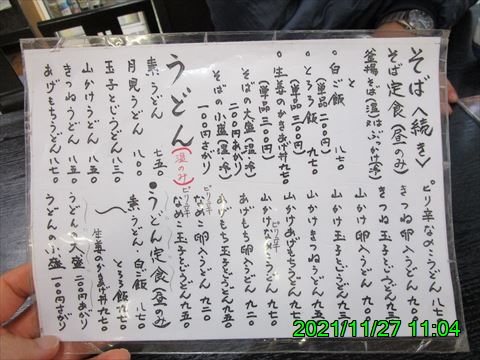 そば(続き)
そば定食(昼のみ)
釜揚そば(温)又はぶっかけ(冷)
と
・白ご飯 八七〇
(単品二〇〇円)
・とろろ飯 九七〇
(単品三〇〇円)
・生姜のかきあげ丼九七〇
(単品三〇〇円)
そばの大盛(温・冷)
二〇〇円あがり
そばの小盛(温・冷)
一〇〇円さがり
うどん(温のみ)
素うどん 七五〇
月見うどん 八〇〇
玉子とじうどん 八三〇
山かけうどん 八五〇
きつねうどん 八五〇
あげもちうどん 八五〇
ピリ辛なめこうどん 八七〇
きつね卵入うどん 九〇〇
きつね玉子とじうどん
山かけ卵入うどん 九〇〇
山かけ玉子とじうどん
山かけきつねうどん 九五〇
山かけあげもちうどん
ピリ辛
山かけなめこうどん
あげもち卵入うどん 九二〇
あげもち玉子とじうどん九五〇
ピリ辛
なめこ卵入うどん 九二〇
ピリ辛
なめこ玉子とじうどん九五〇
●うどん定食(昼のみ)
素うどん・白ご飯 八七〇
とろろ飯 九七〇
生姜のかきあげ丼 九七〇
うどん大盛 二〇〇円あがり
うどんの小盛 一〇〇円さがり
2021/11/27 11:04